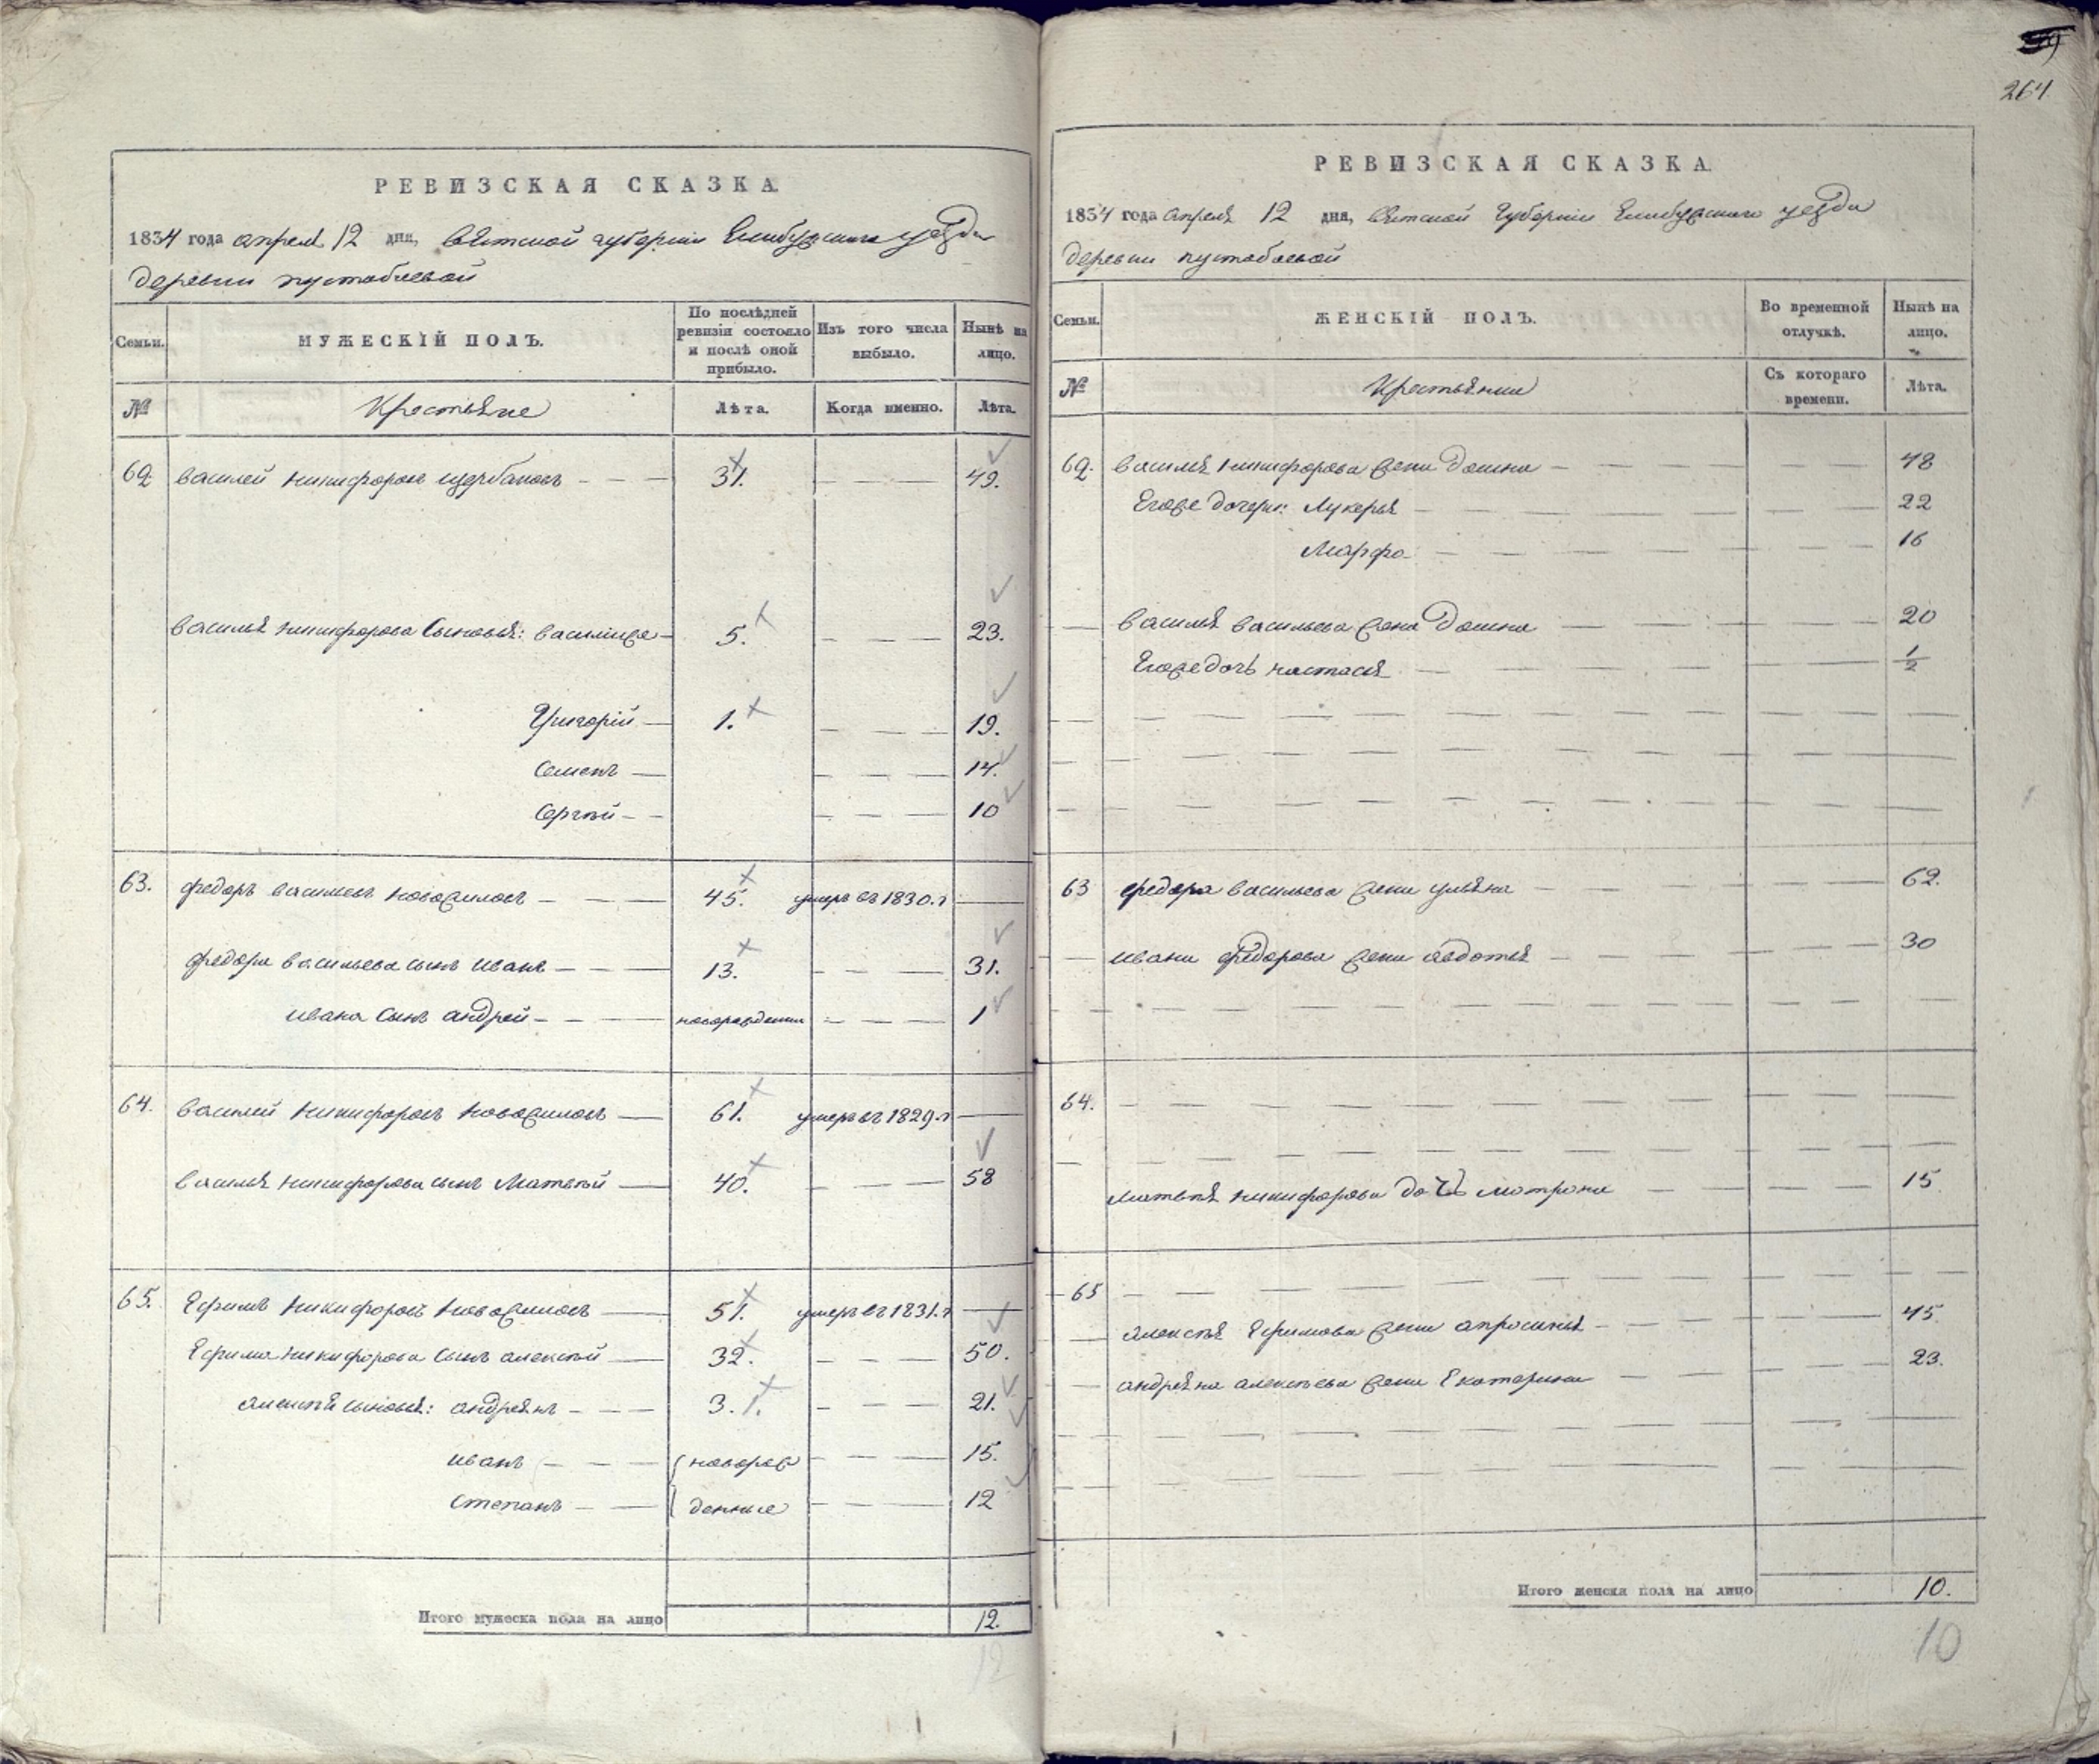 264
РЕВИЗСКАЯ СКАЗКА.
1834 года апреля 12 дня, Вятской губернии Елабужскаго уезда
деревни пустобаевой
Семьи. МУЖЕСКІЙ ПОЛЪ. По послѣдней ревизіи состояло и послѣ оной прибыло. Изъ того числа выбыло. Нынѣ на лицо.
№ Крестьяне Лѣта. Когда именно. Лѣта.
62 василей никифоровъ щербаковъ 31. 49.
василья никифорова сыновья: василиже 5. 23.
Григорій 1. 19.
Семенъ 14.
Сергѣй 10
63. федоръ васильевъ новожиловъ 45. умеръ въ 1830.г
федора васильева сынъ иванъ 13. 31.
ивана сынъ андрей новорожденни 1
64. василей никифоровъ новожиловъ 61. умеръ въ 1829.г
василья никифорова сынъ Матвѣй 40. 58
65. Ефимъ никифоровъ новожиловъ 51. умеръ въ 1831.г
Ефима никифорова сынъ алексѣй 32. 50.
алексѣя сыновья: андреянъ 3. 21.
иванъ новорож 15.
степанъ денные 12
Итого мужеска пола на лицо 12.
12
РЕВИЗСКАЯ СКАЗКА.
1834 года апреля 12 дня, Вятской губернии Елабужскаго уезда
деревни пустобаевой
Семьи. ЖЕНСКІЙ ПОЛЪ. Во временной отлучкѣ. Нынѣ на лицо.
№ Крестьянки Съ котораго времени. Лѣта.
62. василья никифорова жена Домна 48
Егоже дочери: Лукерья 22
Марфа 16
василья васильева жена Домна 20
Егоже дочь настасья 1/2
63 федора васильева жена ульяна 62.
ивана федорова жена авдотья 30
64.
матвѣя никифорова дочь матрона 15
65
алексѣя Ефимова жена апросинья 45
андреяна алексѣева жена Екатерина 23.
Итого женска пола на лицо 10.
10